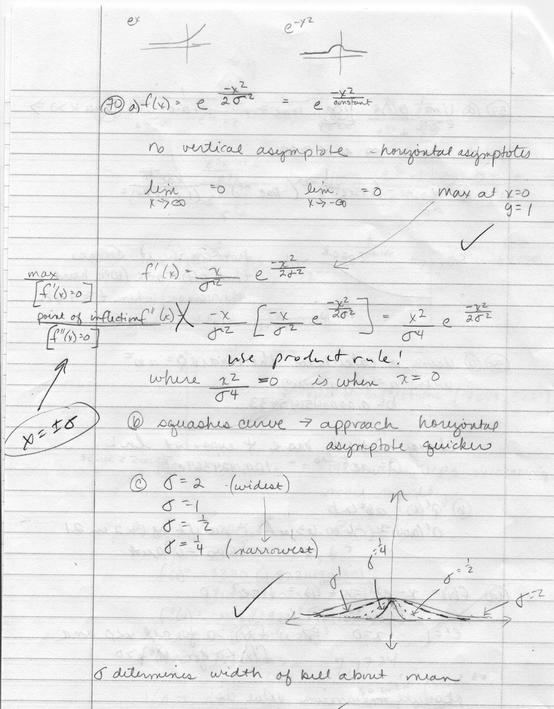 eˣ e^(-x²)
70 a) f(x) = e^(-x²/2σ²) = e^(-x²/constant)
no vertical asymptote - horizontal asymptotes
lim x→∞ =0 lim x→-∞ =0 max at x=0
y=1
✓
max
[f'(x)=0]
f'(x) = x/σ² e^(-x²/2σ²)
point of inflection f''(x) X -x/σ² [-x/σ² e^(-x²/2σ²)] = x²/σ⁴ e^(-x²/2σ²)
[f''(x)=0]
use product rule!
where x²/σ⁴ =0 is when x=0
x=±σ
b) squashes curve → approach horizontal
asymptote quicker
c) σ=2 (widest)
σ=1
σ=1/2
σ=1/4 (narrowest)
✓
σ=1/4
σ=1/2
σ=2
σ determines width of bell about mean